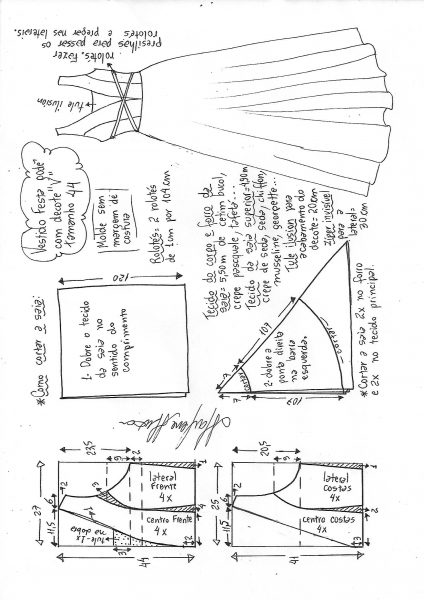 presilhas para passar os
rolotês. Fazer
rolotês e pregar nas laterais.
tule ilusion
Vestido Festa Godê
com decote "V"
Tamanho 44
Molde sem
margem de
costura
Rolotês: 2 rolotês
de 1cm por 104cm
Tecido do corpo e forro da
saia: 5,50m de cetim bucol,
crepe pasquale, tafetá...
Tecido da saia superior=4,90m
crepe de seda, seda, chiffon,
musseline, georgette...
Tule ilusion para
acabamento do
decote=20cm
Zíper invisível
para a
lateral=
30cm
*Como cortar a saia:
120
1- Dobre o tecido
da saia no
sentido do
comprimento
107
7
7
cortar
cortar
2-dobre a
ponta direita
na barra
esquerda.
107
*Cortar a saia 2x no forro
e 2x no tecido principal.
22,5
9
2
27
6
2
11,5
lateral
Frente
4x
centro Frente
4x
tule-1x
na dobra
3
1
2
44
20,5
25
6
2
11,5
lateral
costas
4x
centro costas
4x
1
2
3
41